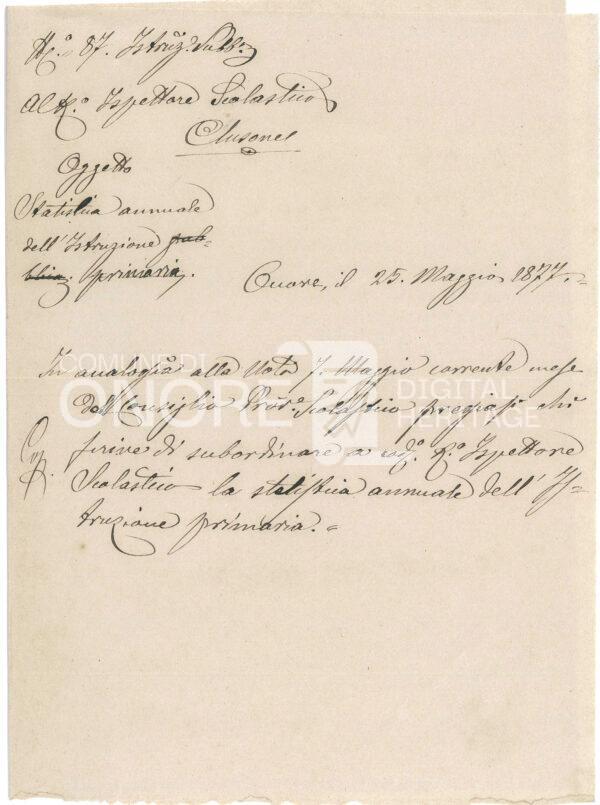 N.° 87. Istruz. Pubb.
Al R.° Ispettore Scolastico
Clusone
Oggetto
Statistica annuale
dell'Istruzione pub-
blica primaria.
Onore, il 25. Maggio 1877.=
In analogia alla Nota 7. Maggio corrente mese
del Consiglio Prov.e Scolastico pregiasi chi
scrive di subordinare a R.° Ispettore
Scolastico la statistica annuale dell'Is=
truzione primaria.=
COMUNE DI
ONORE
DIGITAL
HERITAGE